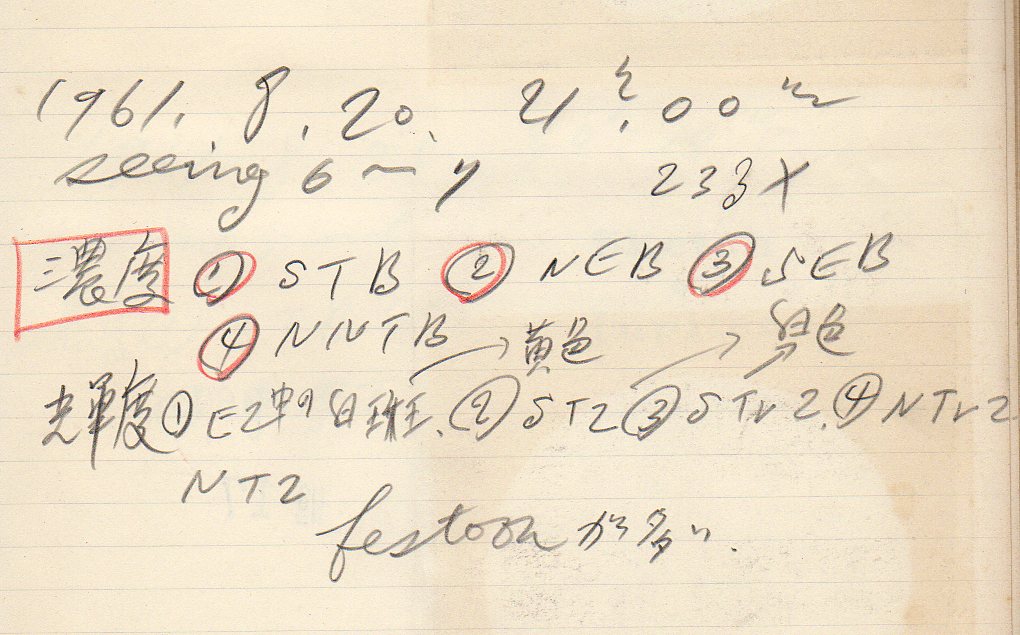 1961. 8. 20. 21h.00m
seeing 6〜7 233X
濃度 ① STB ② NEB ③ SEB
④ NNTB →黄色 →白色
輝度 ① EZ中の白斑、② STZ ③ STrZ. ④ NTrZ
NTZ
festoonが多い.